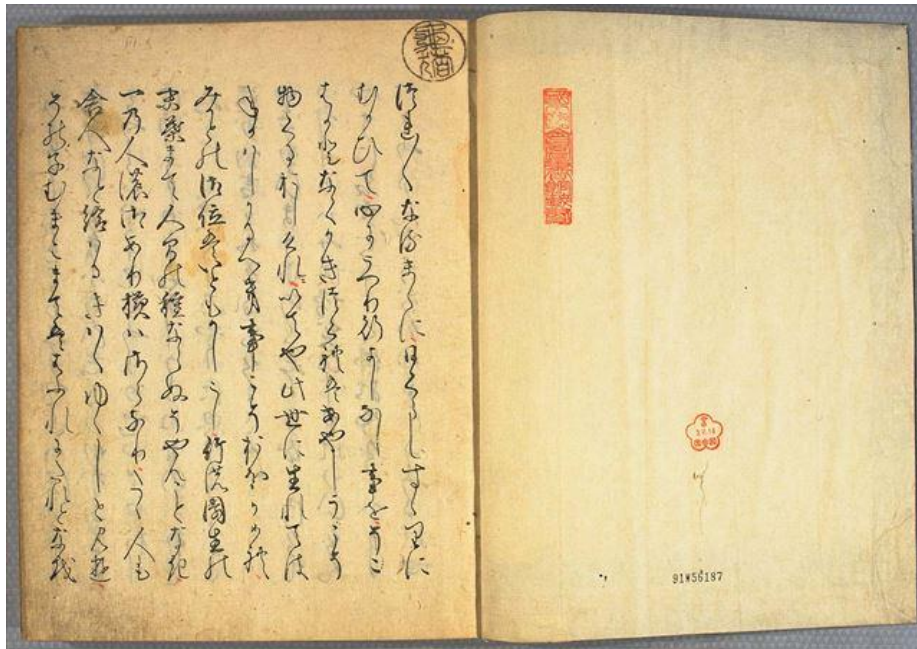 91W56187
つれ〳〵なるまゝに日くらしすゝりに
むかひて心にうつり行よしなし事をそこ
はかとなくかきつくれはあやしうこそ
物くるおしけれいてや此世に生れては
ねかはしかるへき事こそおほかめれ
みかとの御位はいともかしこし竹の園生の
末葉まて人間の種ならぬそやんことなき
一の人の御あり様はさらなりたゝ人も
舎人なと給はるきははゆゝしと見ゆ
その子むまこまてははふれにたれとなを